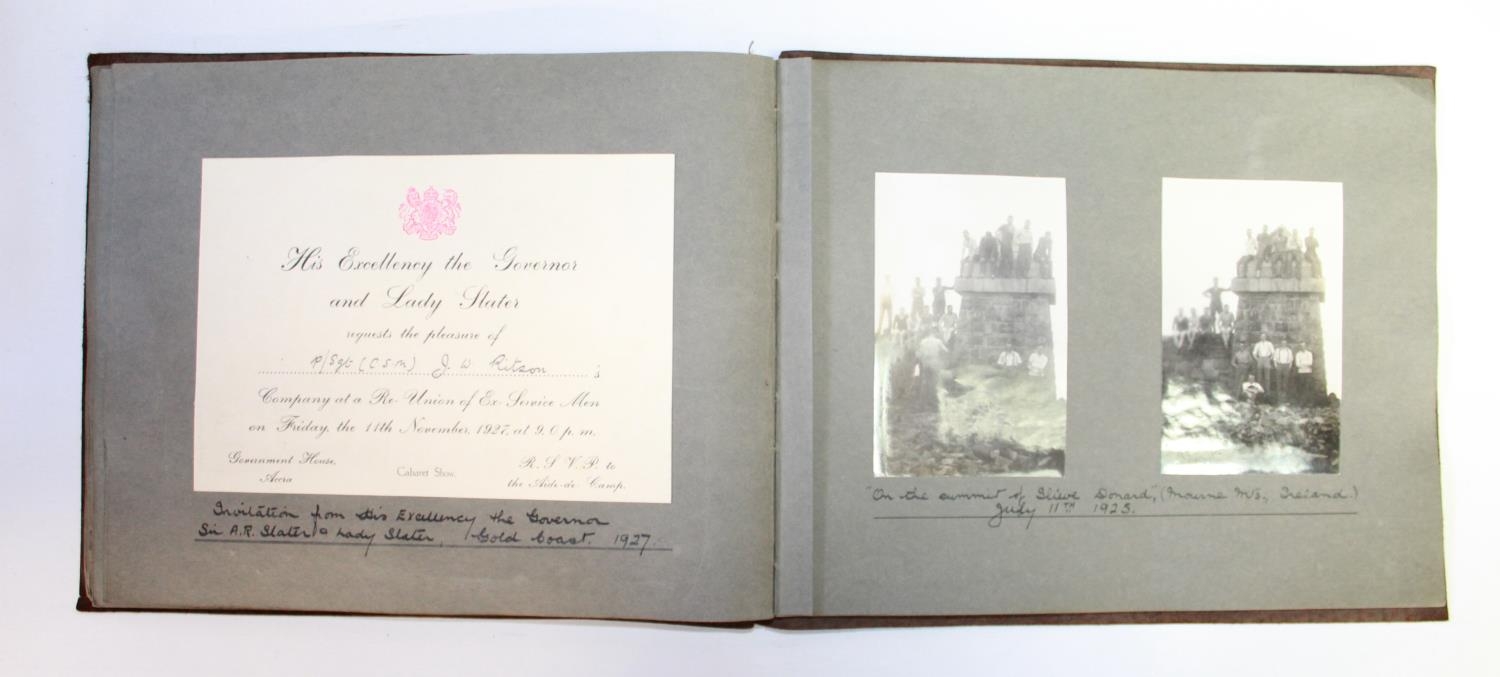 His Excellency the Governor
and Lady Slater
requests the pleasure of
P/Sgt (C S M) J. W Ritson 's
Company at a Re-Union of Ex-Service Men
on Friday, the 11th November, 1927, at 9.0 p.m.
Government House,
Accra
Cabaret Show.
R. S. V. P. to
the Aide-de-Camp.
Invitation from His Excellency the Governor
Sir A.R. Slater & Lady Slater, Gold Coast. 1927.
"On the summit of Slieve Donard", (Mourne Mts, Ireland.)
July 11TH 1925.